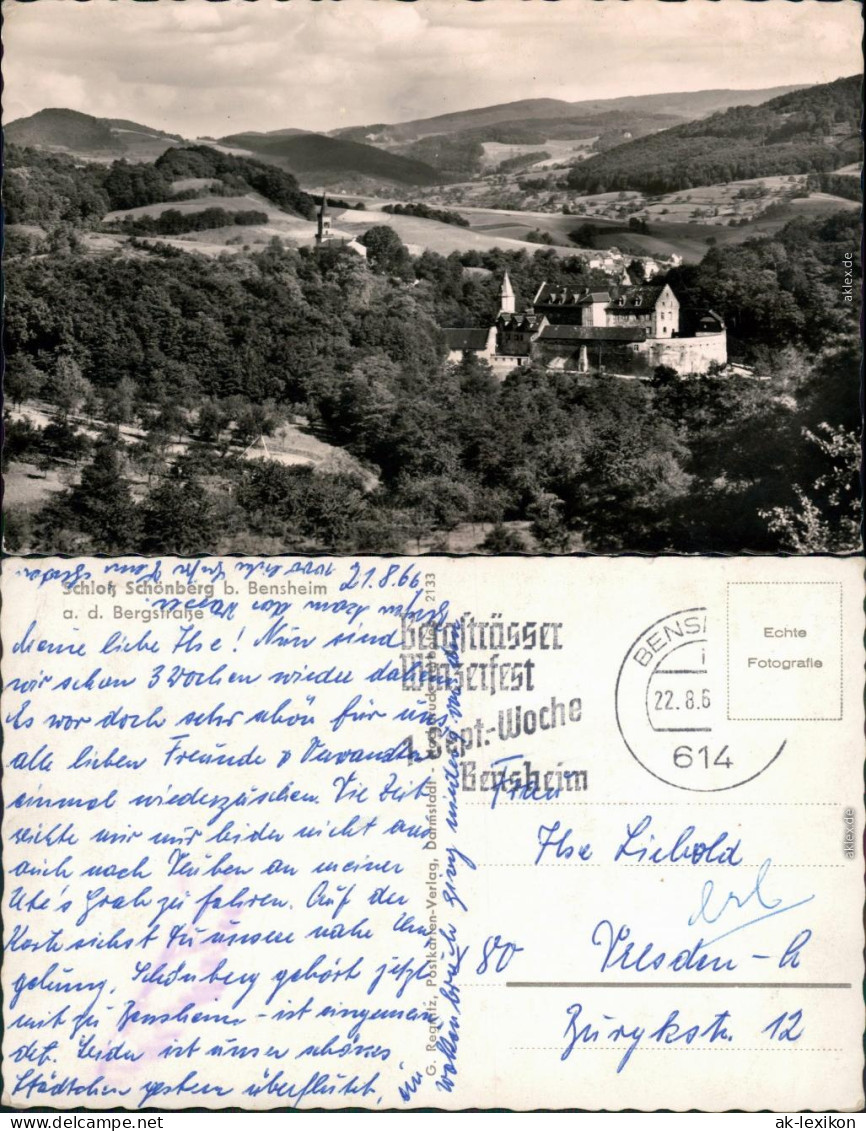 aklex.de
Schloß Schönberg b. Bensheim
a. d. Bergstraße
21.8.66
Meine liebe Ilse! Nun sind
wir schon 3 Wochen wieder daheim.
Es war doch sehr schön für uns
alle lieben Freunde u Verwandten
einmal wiederzusehen. Die Zeit
reichte mir nur leider nicht aus
auch nach Guben an meiner
Ute's Grab zu fahren. Auf der
Karte siehst Du unsere nahe Um
gebung, Schönberg gehört jetzt
mit zu Bensheim - ist eingemein
det. Leider ist unser schönes
Städtchen gestern überflutet,
ein
Wolkenbruch ging nieder
G. Regnitz, Postkarten-Verlag, Darmstadt
2133
Bergsträsser
Winzerfest
1. Sept.-Woche
Bensheim
BENS
22.8.6
614
Echte
Fotografie
Frau
Ilse Liebold
x 80
Dresden-A
Zurykstr. 12
aklex.de
www.ak-ansichtskarten.de
ak-lexikon.com